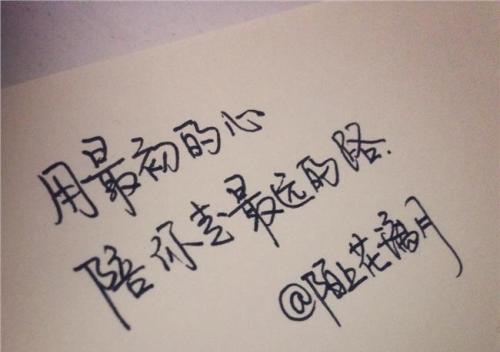 用最初的心
陪你去最远的路.
@陌上花漓月